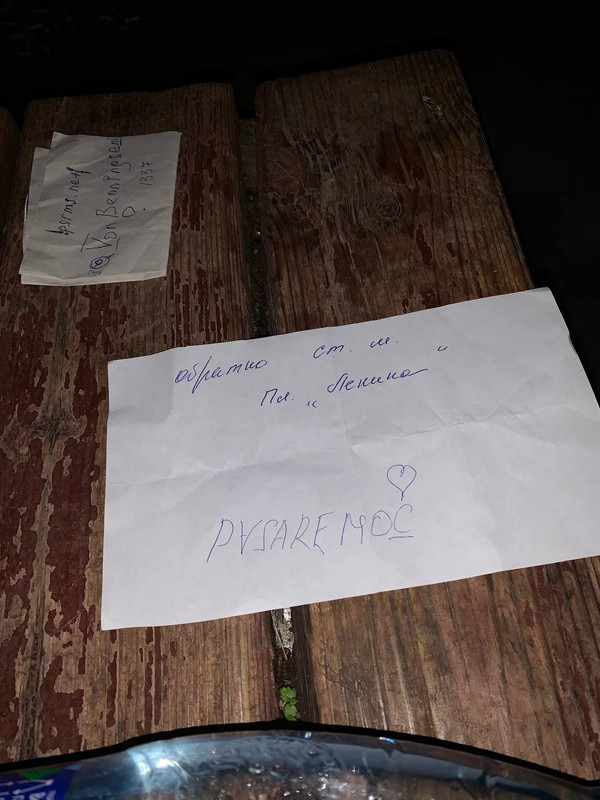 psrms.net/
@VonBenningsen
1337
обратно ст. м.
Пл. „Ленина"
PVSAREMOC